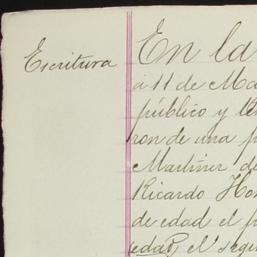 Escritura
En la
a 11 de Ma
público y
ron de una p
Martiner de
Ricardo Hon
de edad el p
edad el segu